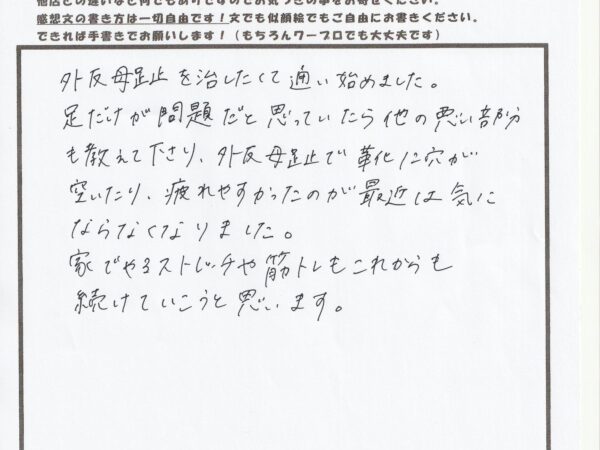 他店との違いなど何でもありですのでお気づきの事をお寄せください。
感想文の書き方は一切自由です！文でも似顔絵でもご自由にお書きください。
できれば手書きでお願いします！（もちろんワープロでも大丈夫です）
外反母趾を治したくて通い始めました。
足だけが問題だと思っていたら他の悪い部分
も教えて下さり、外反母趾で靴に穴が
空いたり、疲れやすかったのが最近は気に
ならなくなりました。
家でやるストレッチや筋トレもこれからも
続けていこうと思います。